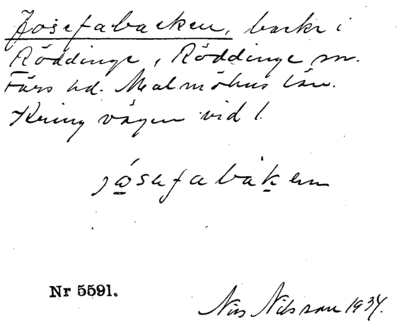 Josefabacken, backe i
Röddinge, Röddinge sn.
Färs hd. Malmöhus län.
Kring vägen vid 1.
jòsefabàken
Nr 5591.
Nils Nilsson 1934.